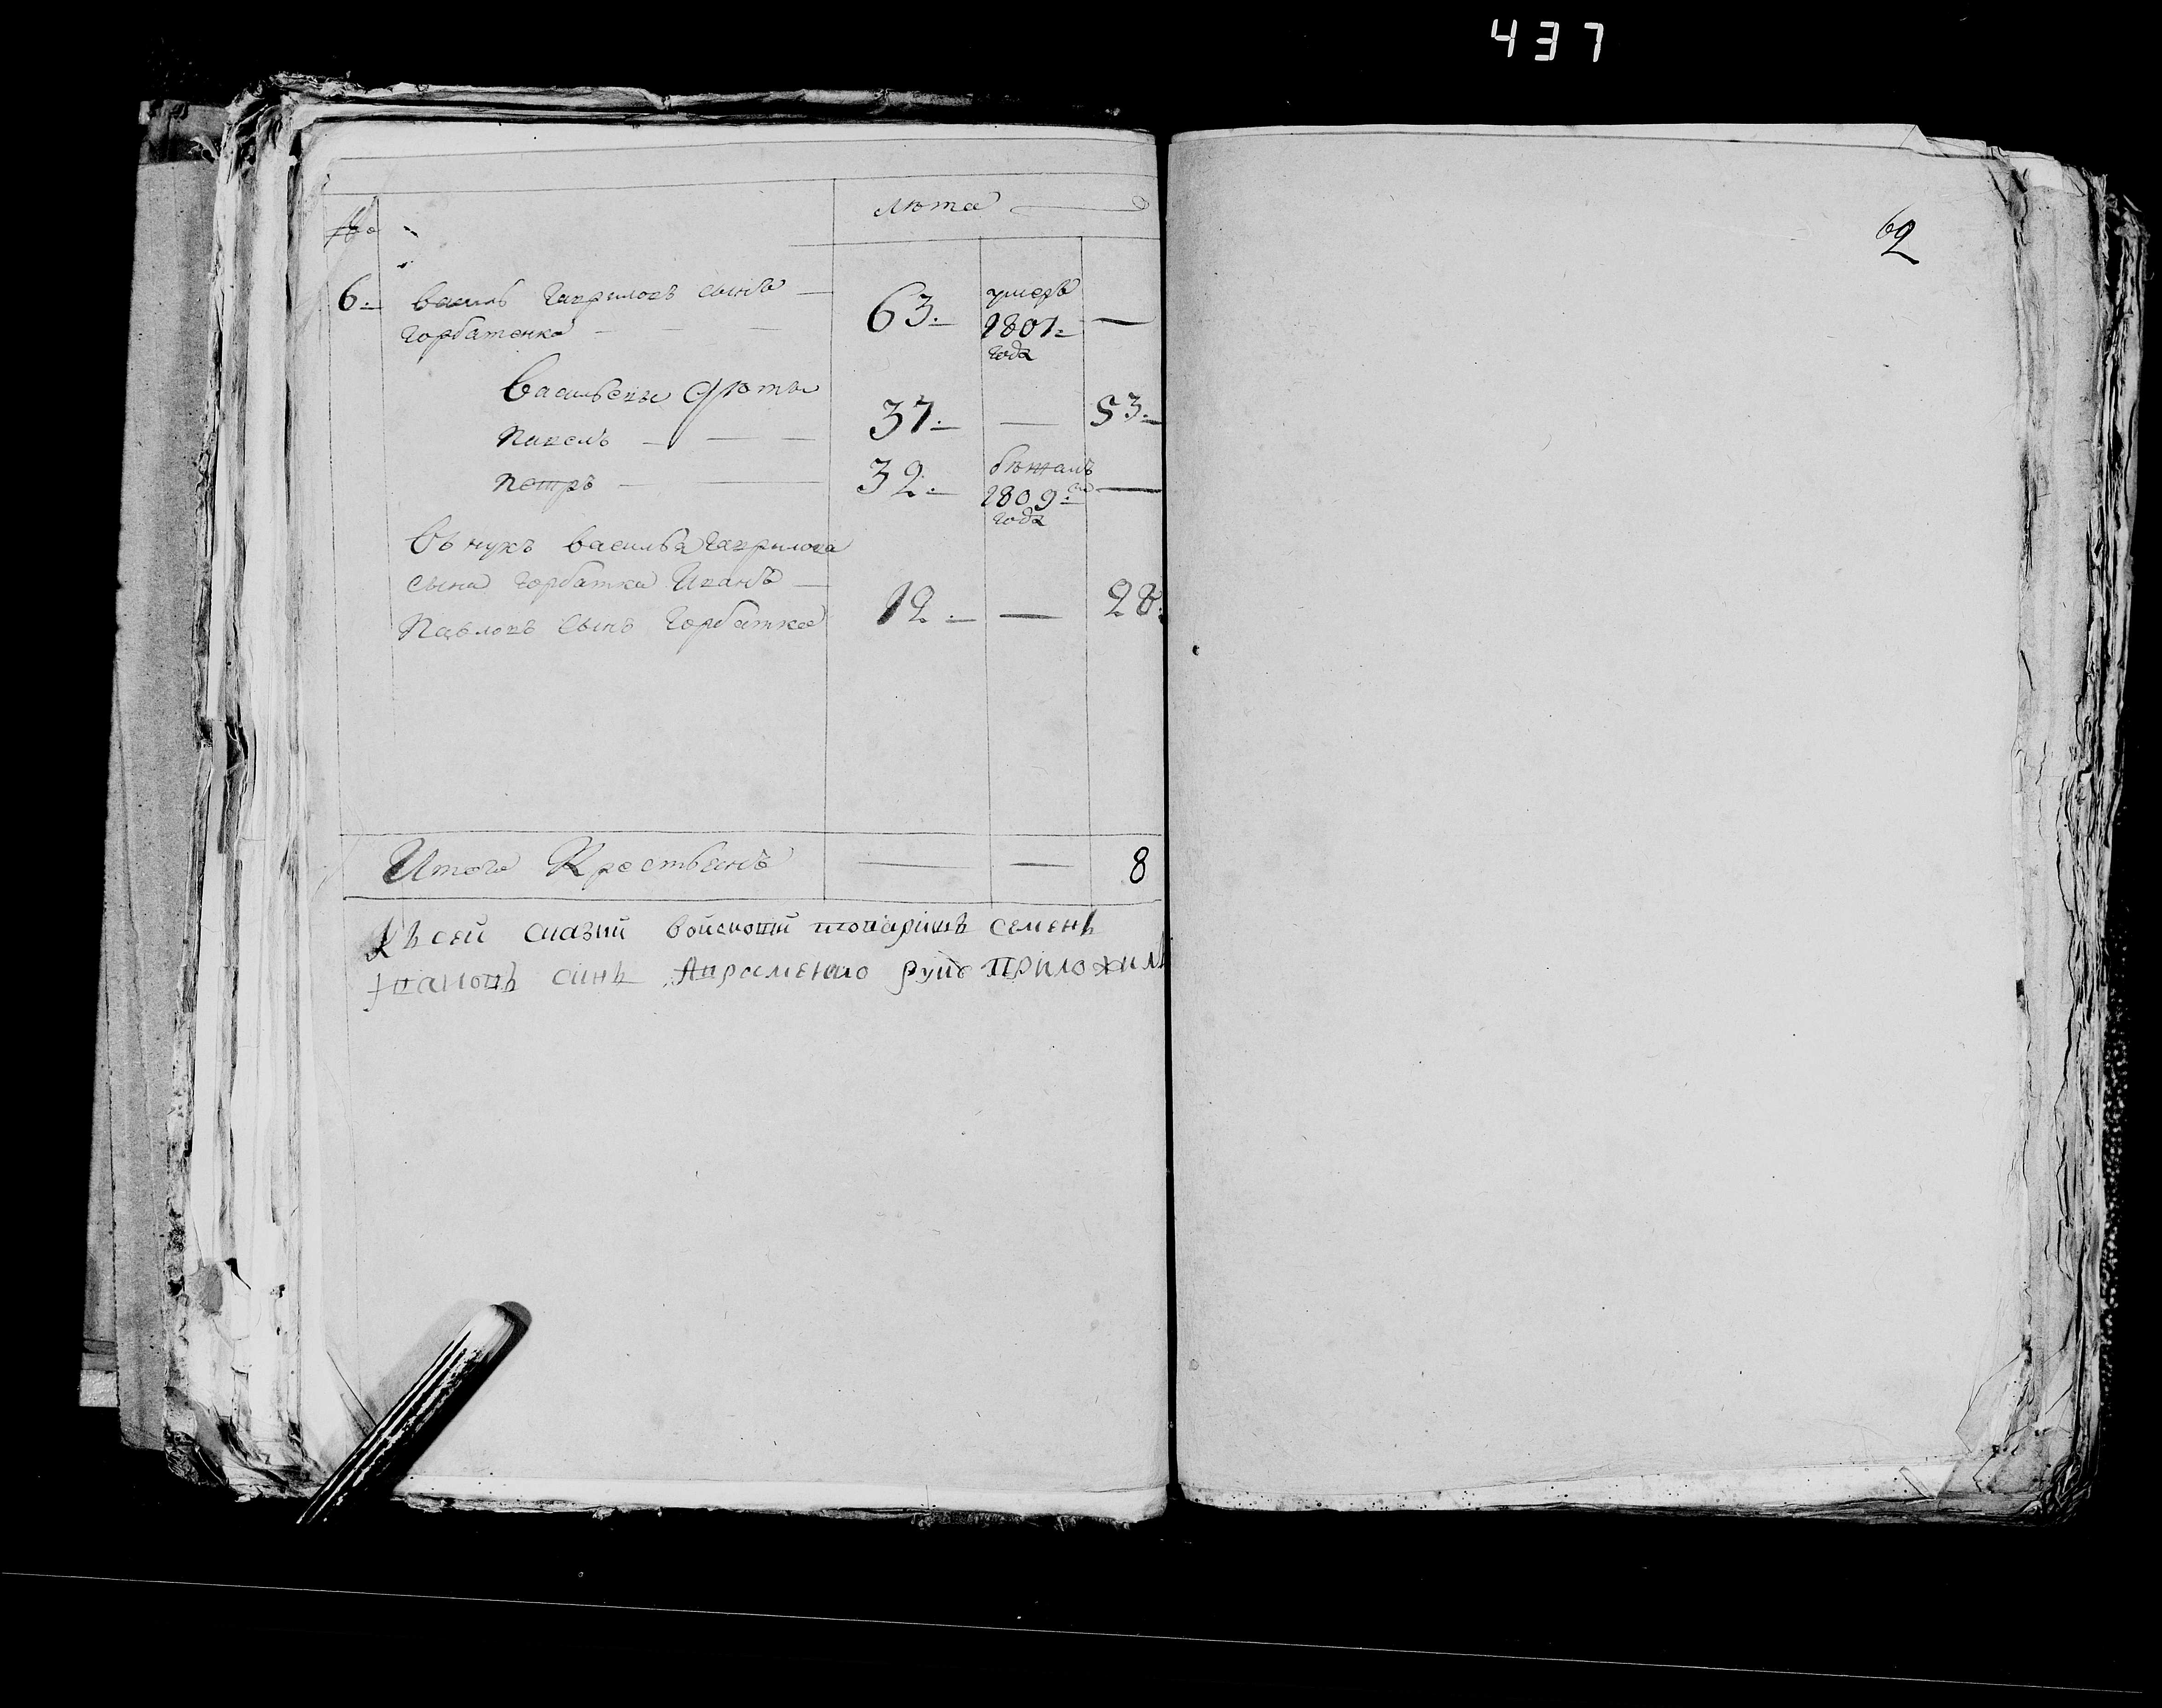 437
62
№ лѣта
6. василь Гавриловъ сынъ 63. умеръ
Горбатенко 1801 года
Васильевы дѣти
павелъ 37. 53.
петръ 32. бѣжалъ 1809го года
Внукъ василья Гаврилова
сына горбатка Иванъ
Павловъ сынъ Горбатко 12. 28.
Итого Крестьянъ 8
Къ сей сказки войсковій товарищъ семенъ
синъ руку приложилъ